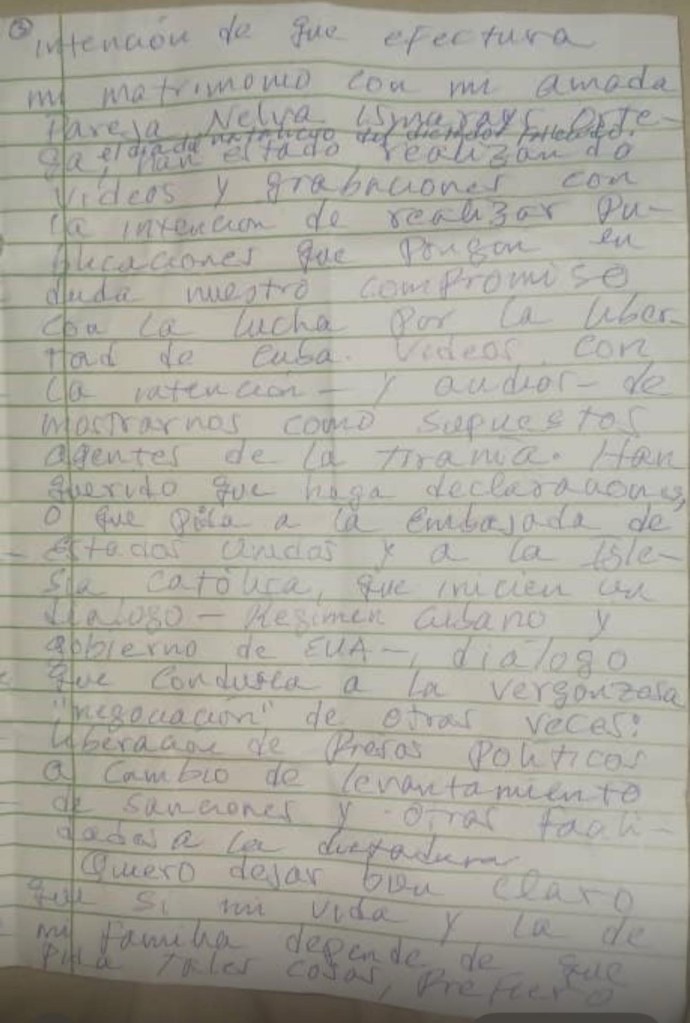 ③ intención de que efectura
mi matrimonio con mi amada
pareja Nelva Ismarays Orte-
ga, el día de natalicio del dictador fallecido.
han estado realizando
videos y grabaciones con
la intención de realizar pu-
blicaciones que pongan en
duda nuestro compromiso
con la lucha por la liber-
tad de Cuba. Videos con
la intención - y audios - de
mostrarnos como supuestos
agentes de la tiranía. Han
querido que haga declaraciones,
o que pida a la embajada de
Estados Unidos y a la Igle-
sia católica, que inicien un
diálogo - Regimen cubano y
gobierno de EUA -, diálogo
que condusca a la vergonzosa
"negociación" de otras veces:
liberación de Presos Políticos
a cambio de levantamiento
de sanciones y otras facili-
dades a la dictadura
Quiero dejar bien claro
que si mi vida y la de
mi familia depende de que
pida tales cosas, prefiero